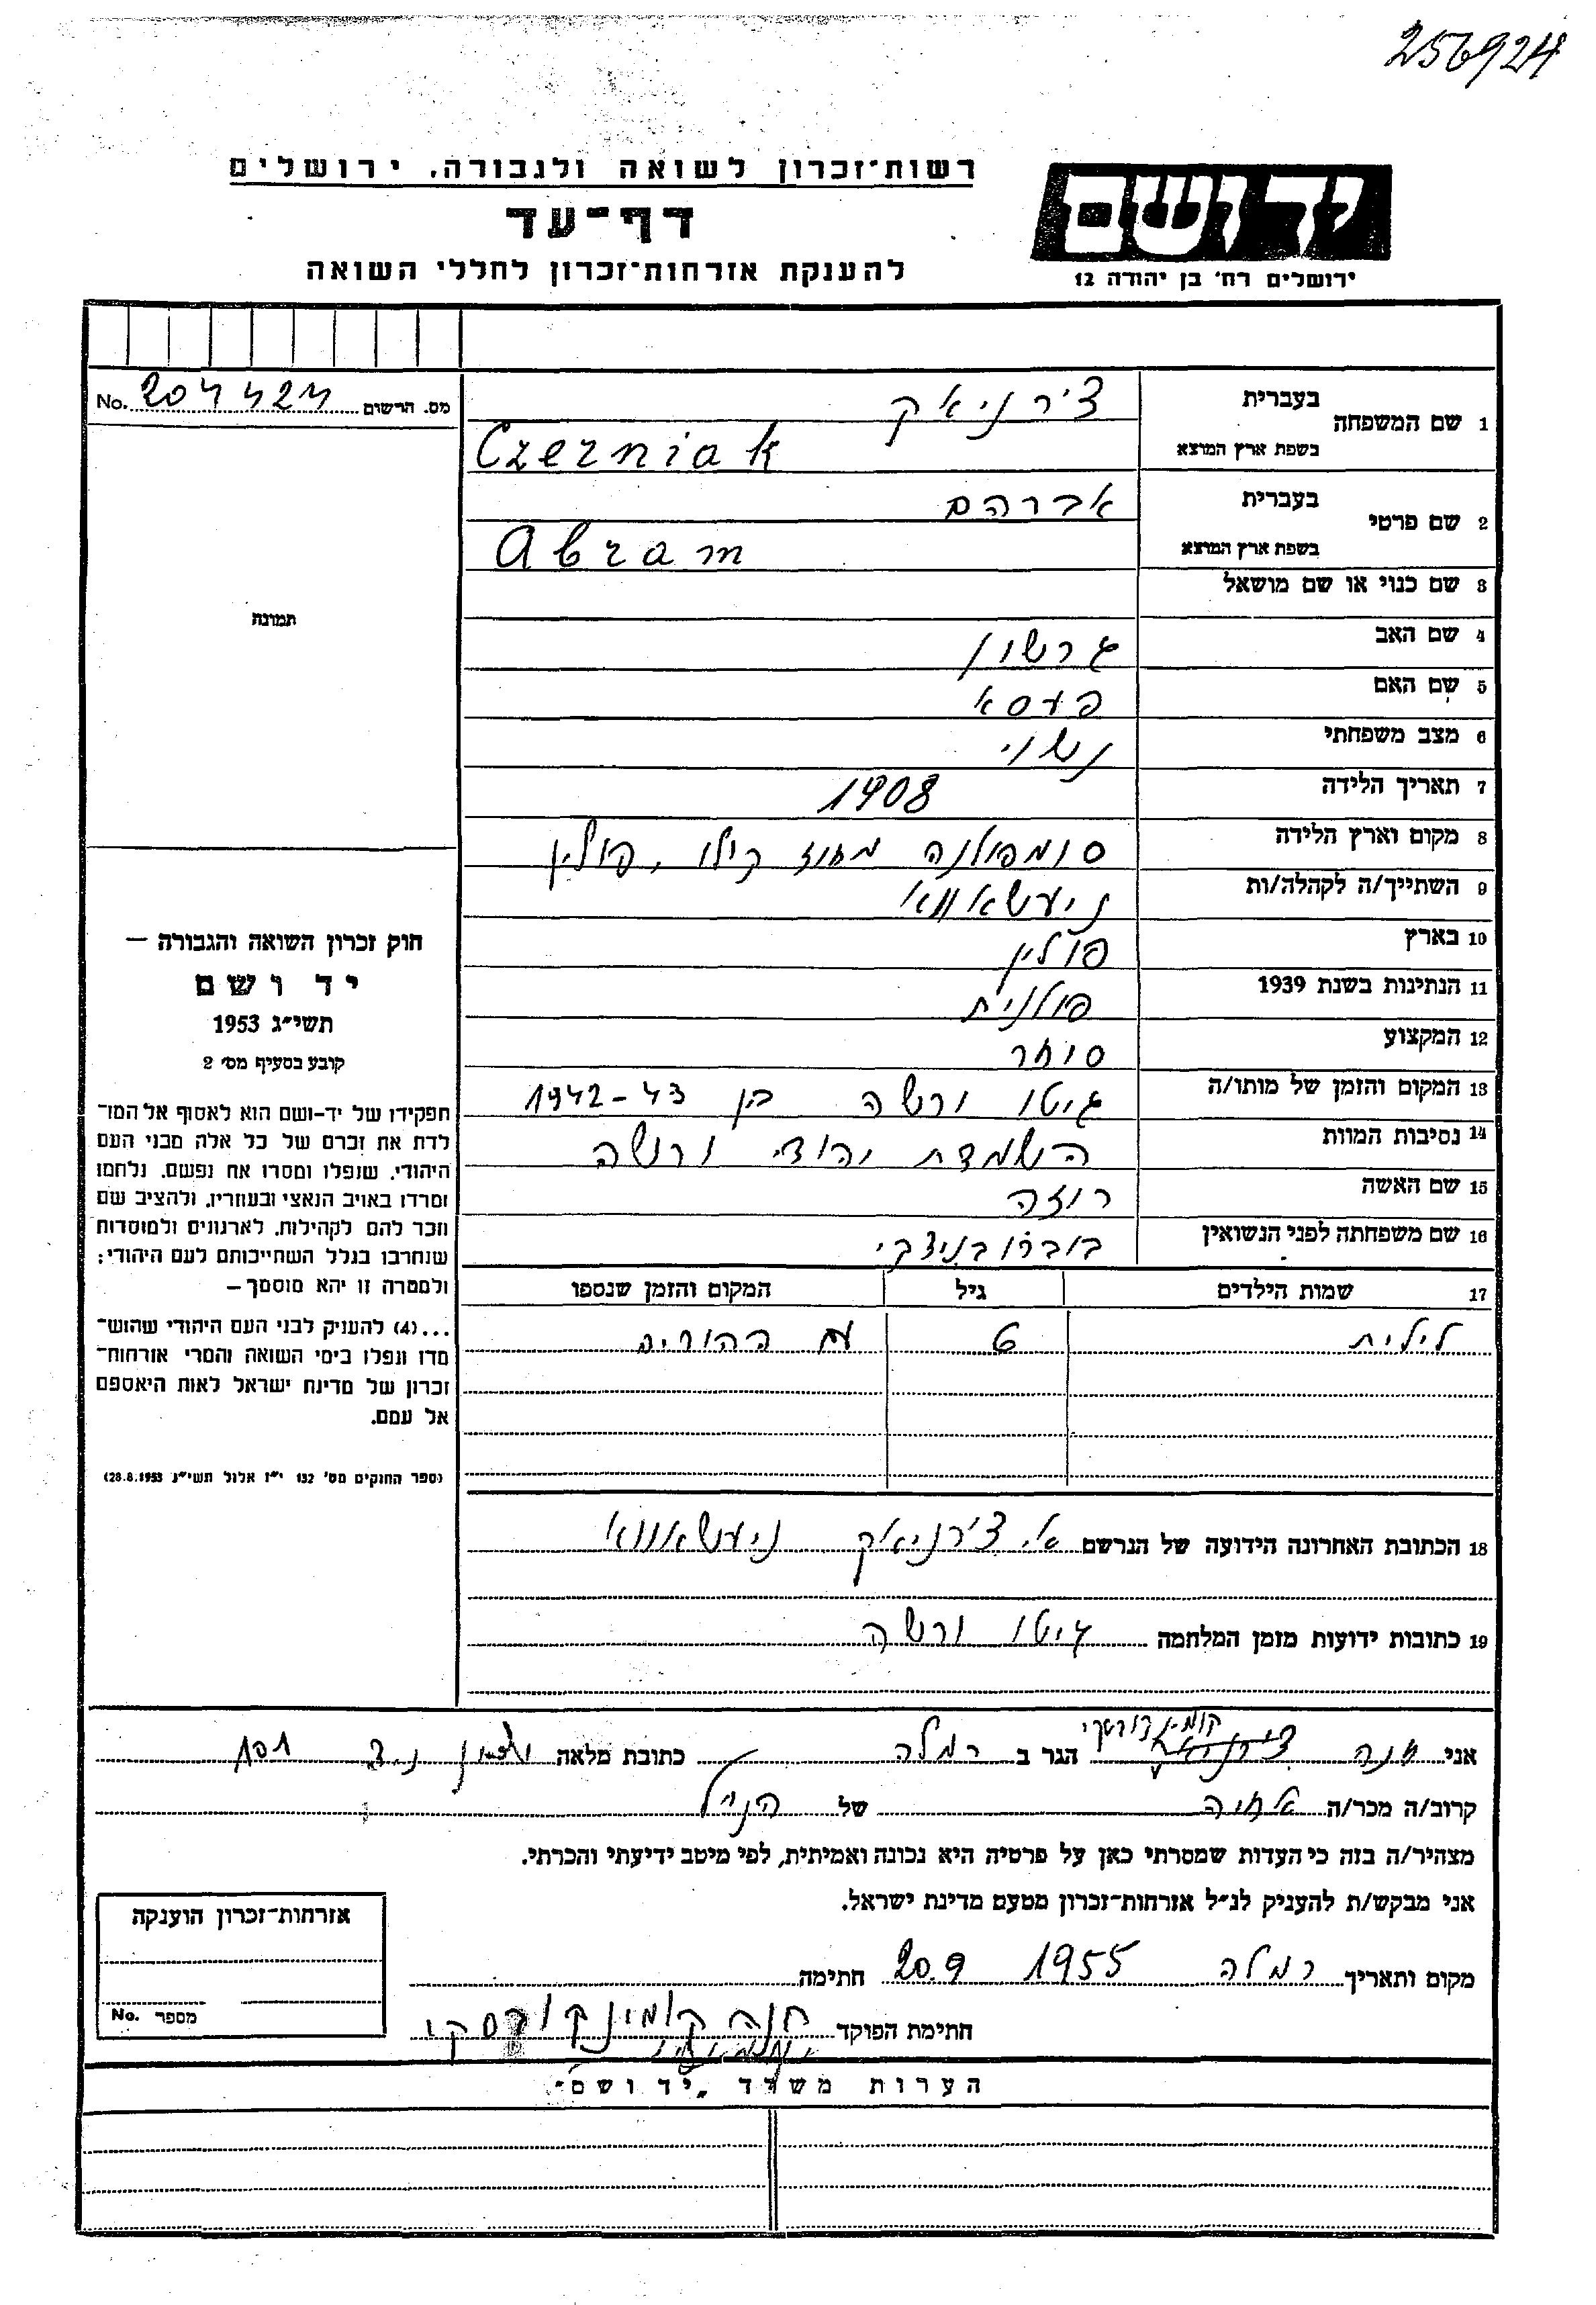 256924
רשות־זכרון לשואה ולגבורה, ירושלים
ידושם
דף־עד
להענקת אזרחות־זכרון לחללי השואה
ירושלים רח' בן יהודה 12
מס. הרשום No. 204424
1 שם המשפחה
בעברית צ'רניאק
בשפת ארץ המוצא Czerniak
2 שם פרטי
בעברית אברהם
בשפת ארץ המוצא Abram
3 שם כנוי או שם מושאל
4 שם האב גרשון
5 שם האם פעסא
6 מצב משפחתי נשוי
7 תאריך הלידה 1908
8 מקום וארץ הלידה סומפולנה מחוז קילו, פולין
9 השתייך/ה לקהלה/ות ניעשאווא
10 בארץ פולין
11 הנתינות בשנת 1939 פולנית
12 המקצוע סוחר
13 המקום והזמן של מותו/ה גיטו ורשה בן 1942-43
14 נסיבות המוות השמדת יהודי ורשה
15 שם האשה רוזה
16 שם משפחתה לפני הנשואין
17 שמות הילדים גיל המקום והזמן שנספו
לילית 6 עם ההורים
18 הכתובת האחרונה הידועה של הנרשם א. צ'רניאק ניעשאווא
19 כתובות ידועות מזמן המלחמה גיטו ורשה
תמונה
חוק זכרון השואה והגבורה —
יד ושם
תשי״ג 1953
קובע בסעיף מס' 2
תפקידו של יד-ושם הוא לאסוף אל המו־
לדת את זכרם של כל אלה מבני העם
היהודי, שנפלו ומסרו את נפשם, נלחמו
ומרדו באויב הנאצי ובעוזריו, ולהציב שם
וזכר להם לקהילות, לארגונים ולמוסדות
שנחרבו בגלל השתייכותם לעם היהודי;
ולמטרה זו יהא מוסמך —
...(4) להעניק לבני העם היהודי שהוש־
מדו ונפלו בימי השואה והמרי אזרחות־
זכרון של מדינת ישראל לאות היאספם
אל עמם.
(ספר החוקים מס' 132 י״ז אלול תשי״ג 28.8.1953)
אני חנה הגר ב רמלה כתובת מלאה 101
קרוב/ה מכר/ה אחיה של הנ״ל
מצהיר/ה בזה כי העדות שמסרתי כאן על פרטיה היא נכונה ואמיתית, לפי מיטב ידיעתי והכרתי.
אני מבקש/ת להעניק לנ״ל אזרחות־זכרון מטעם מדינת ישראל.
מקום ותאריך רמלה 1955 20.9 חתימה
חתימת הפוקד חנה
אזרחות־זכרון הוענקה
מספר No.
הערות משרד „יד ושם"